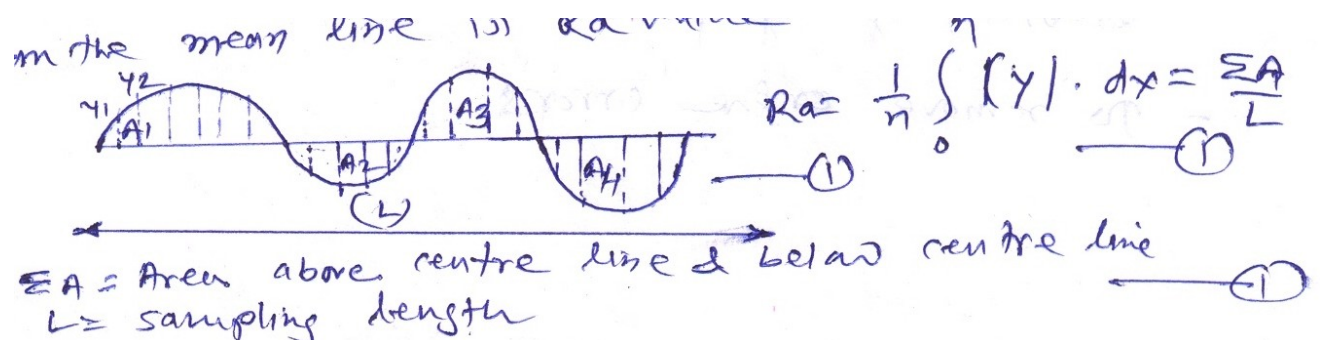 m the mean line is Ra value
y1 y2
A1 A2 A3 A4
Ra = 1/n ∫₀ⁿ |y| . dx = ΣA/L
①
①
(L)
ΣA = Area above centre line & below centre line
①
L = sampling length